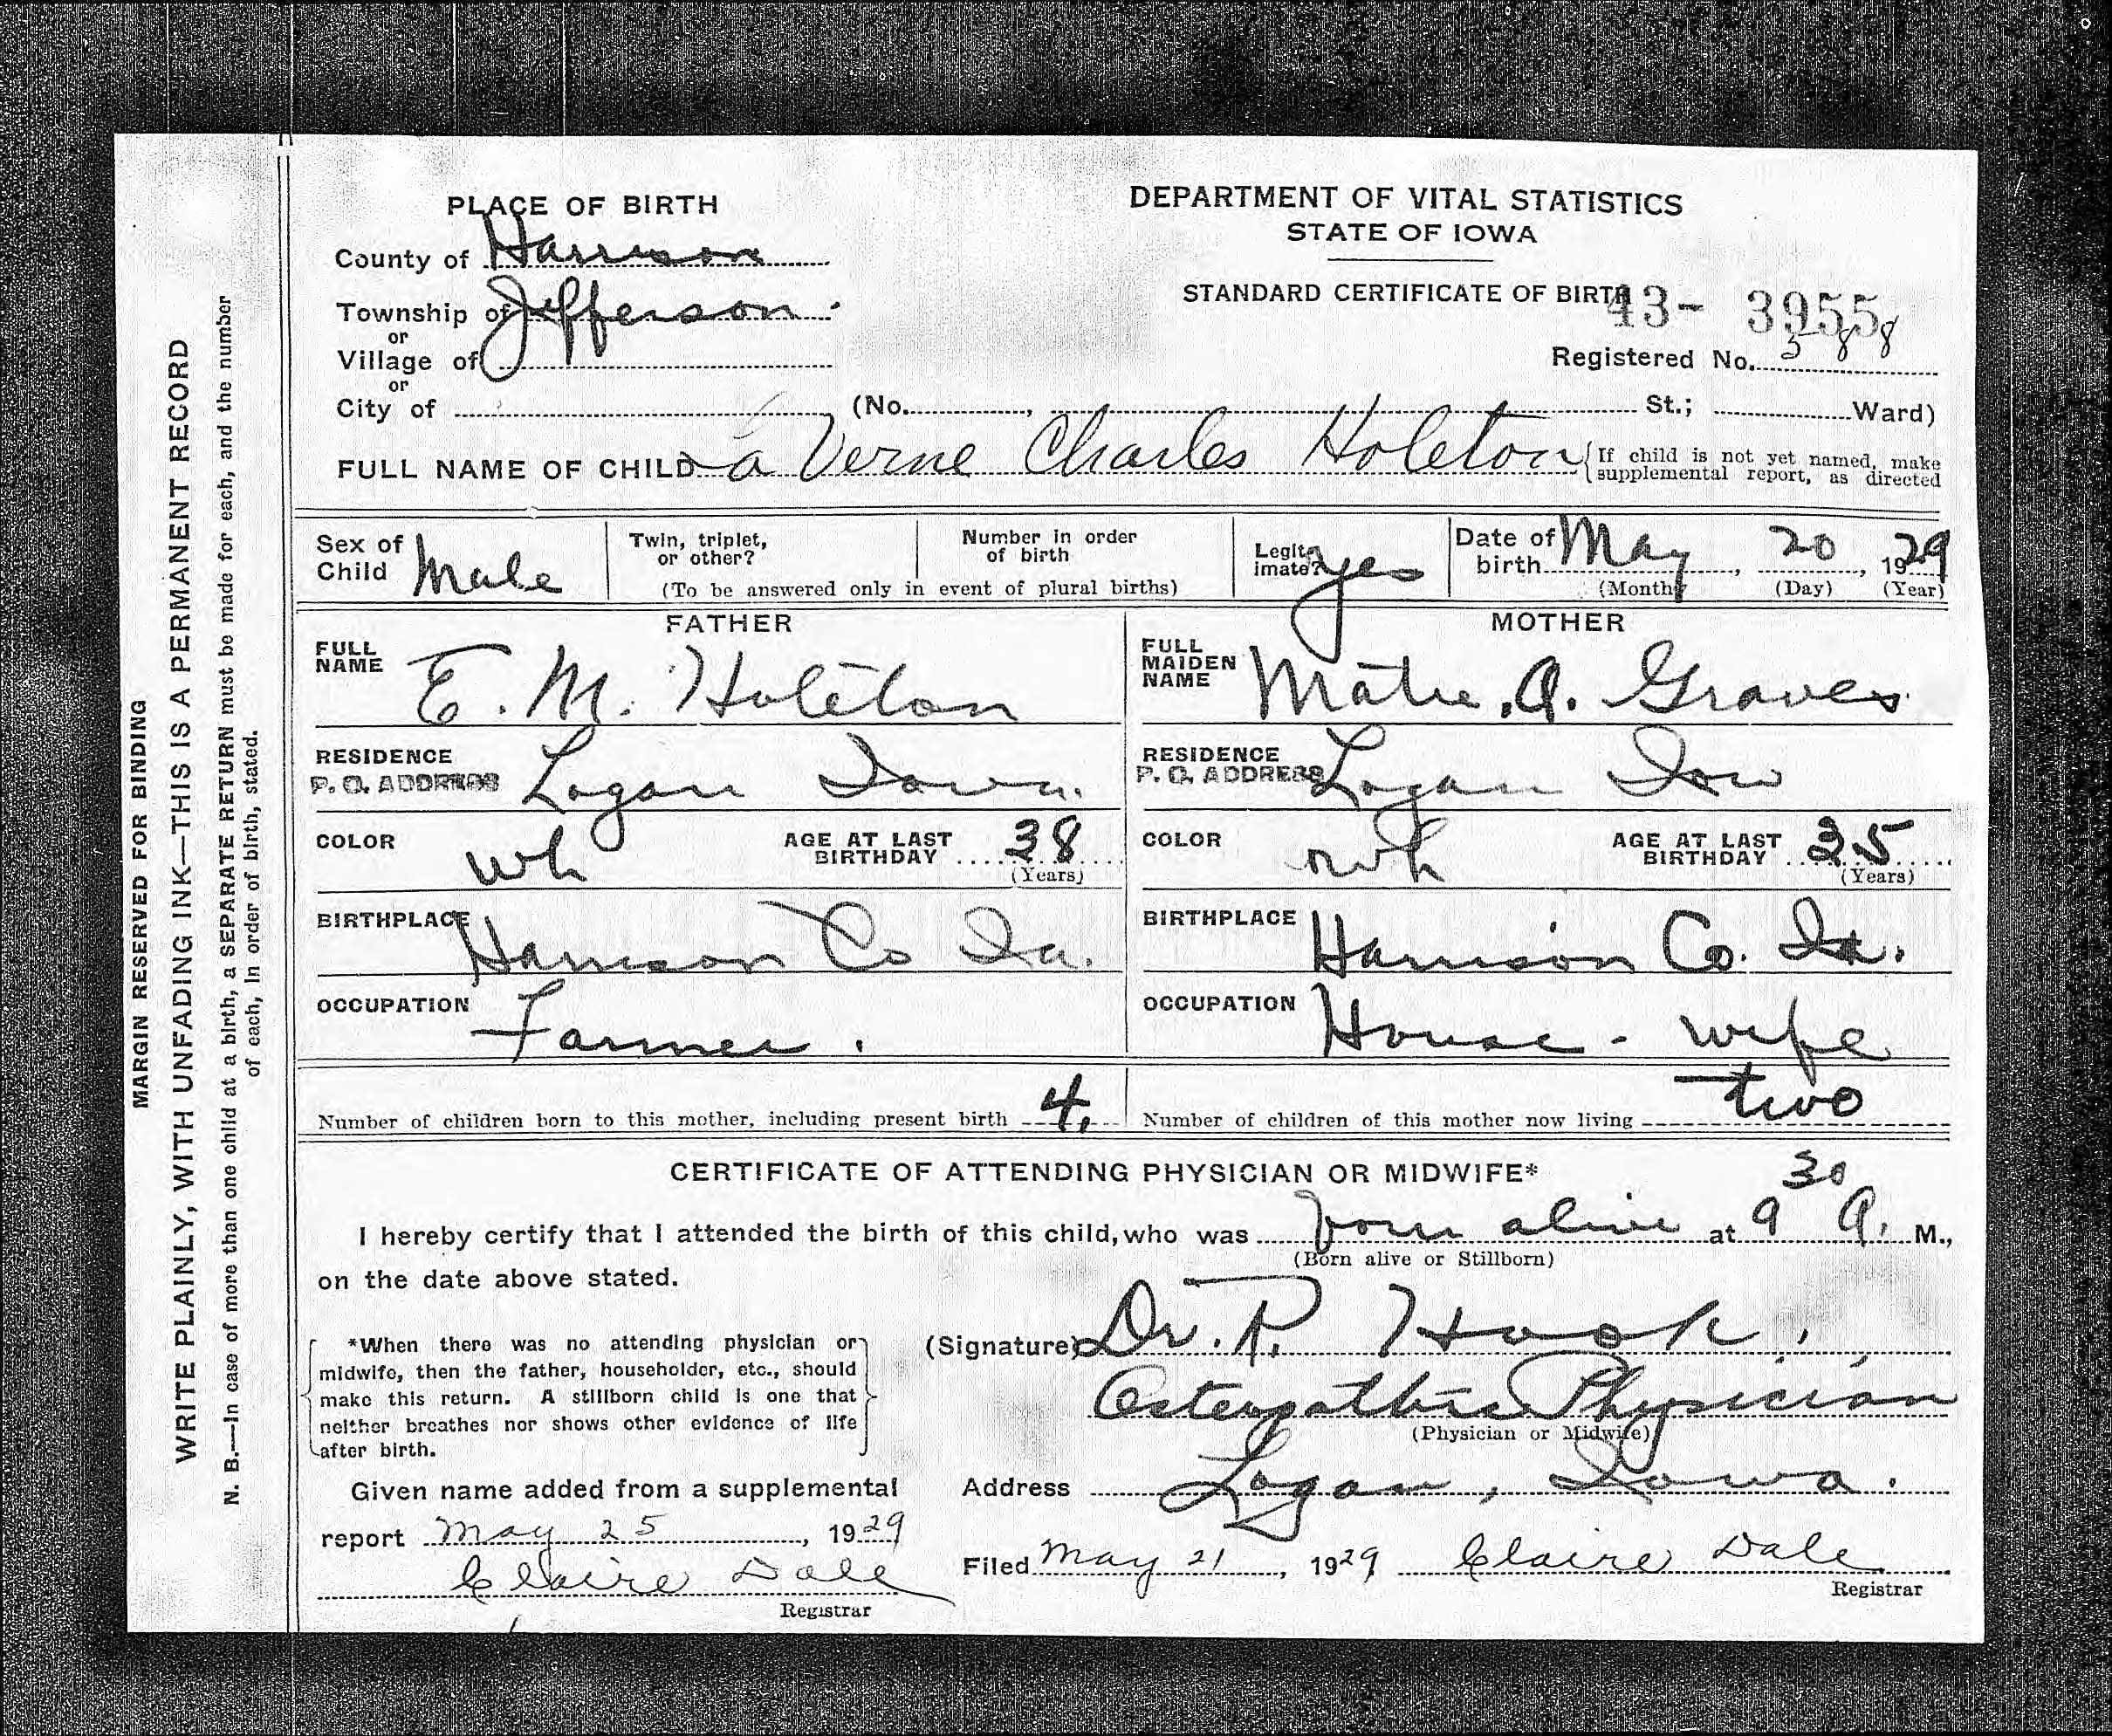 PLACE OF BIRTH
County of Harrison
Township of Jefferson.
or
Village of
or
City of (No. , St.; Ward)
DEPARTMENT OF VITAL STATISTICS
STATE OF IOWA
STANDARD CERTIFICATE OF BIRTH
43- 3955
Registered No. 388
FULL NAME OF CHILD La Verne Charles Holeton
{If child is not yet named, make
supplemental report, as directed
Sex of Child Male
Twin, triplet, or other?
Number in order of birth
(To be answered only in event of plural births)
Legitimate? yes
Date of birth May, 20, 1929
(Month) (Day) (Year)
FATHER
FULL NAME E. M. Holeton
RESIDENCE
P. O. ADDRESS Logan Iowa.
COLOR wh AGE AT LAST BIRTHDAY 38
(Years)
BIRTHPLACE Harrison Co Ia.
OCCUPATION Farmer.
MOTHER
FULL MAIDEN NAME Matie. A. Graves
RESIDENCE
P. O. ADDRESS Logan Iow
COLOR wh AGE AT LAST BIRTHDAY 35
(Years)
BIRTHPLACE Harrison Co. Ia.
OCCUPATION House - wife
Number of children born to this mother, including present birth 4,
Number of children of this mother now living two
CERTIFICATE OF ATTENDING PHYSICIAN OR MIDWIFE*
I hereby certify that I attended the birth of this child, who was born alive at 9 30 A. M.,
(Born alive or Stillborn)
on the date above stated.
*When there was no attending physician or
midwife, then the father, householder, etc., should
make this return. A stillborn child is one that
neither breathes nor shows other evidence of life
after birth.
(Signature) Dr. R. Hook.
Osteopathic Physician
(Physician or Midwife)
Given name added from a supplemental
report May 25, 1929
Claire Dale
Registrar
Address Logan, Iowa.
Filed May 21, 1929 Claire Dale
Registrar
MARGIN RESERVED FOR BINDING
WRITE PLAINLY, WITH UNFADING INK—THIS IS A PERMANENT RECORD
N. B.—In case of more than one child at a birth, a SEPARATE RETURN must be made for each, and the number
of each, in order of birth, stated.